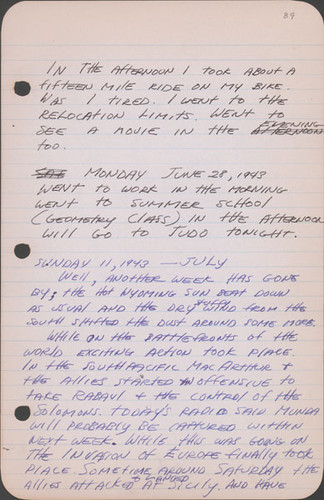 89
IN THE AFTERNOON I TOOK ABOUT A
FIFTEEN MILE RIDE ON MY BIKE.
WAS I TIRED. I WENT TO THE
RELOCATION LIMITS. WENT TO
SEE A MOVIE IN THE AFTERNOON EVENING
TOO.
SAT MONDAY JUNE 28, 1943
WENT TO WORK IN THE MORNING
WENT TO SUMMER SCHOOL
(GEOMETRY CLASS) IN THE AFTERNOON
WILL GO TO JUDO TONIGHT.
SUNDAY 11, 1943 — JULY
WELL, ANOTHER WEEK HAS GONE
BY; THE HOT WYOMING SUN BEAT DOWN
AS USUAL AND THE DRY WIND FROM THE
SOUTH SHIFTED THE DUST AROUND SOME MORE.
WHILE ON THE BATTLEFRONTS OF THE
WORLD EXCITING ACTION TOOK PLACE.
IN THE SOUTH PACIFIC MACARTHUR &
THE ALLIES STARTED AN OFFENSIVE TO
TAKE RABAUL & THE CONTROL OF THE
SOLOMONS. TODAY'S RADIO SAID MUNDA
WILL PROBABLY BE CAPTURED WITHIN
NEXT WEEK. WHILE THIS WAS GOING ON
THE INVASION OF EUROPE FINALLY TOOK
PLACE. SOMETIME AROUND SATURDAY THE
ALLIES ATTACKED & LANDED AT SICILY. AND HAVE